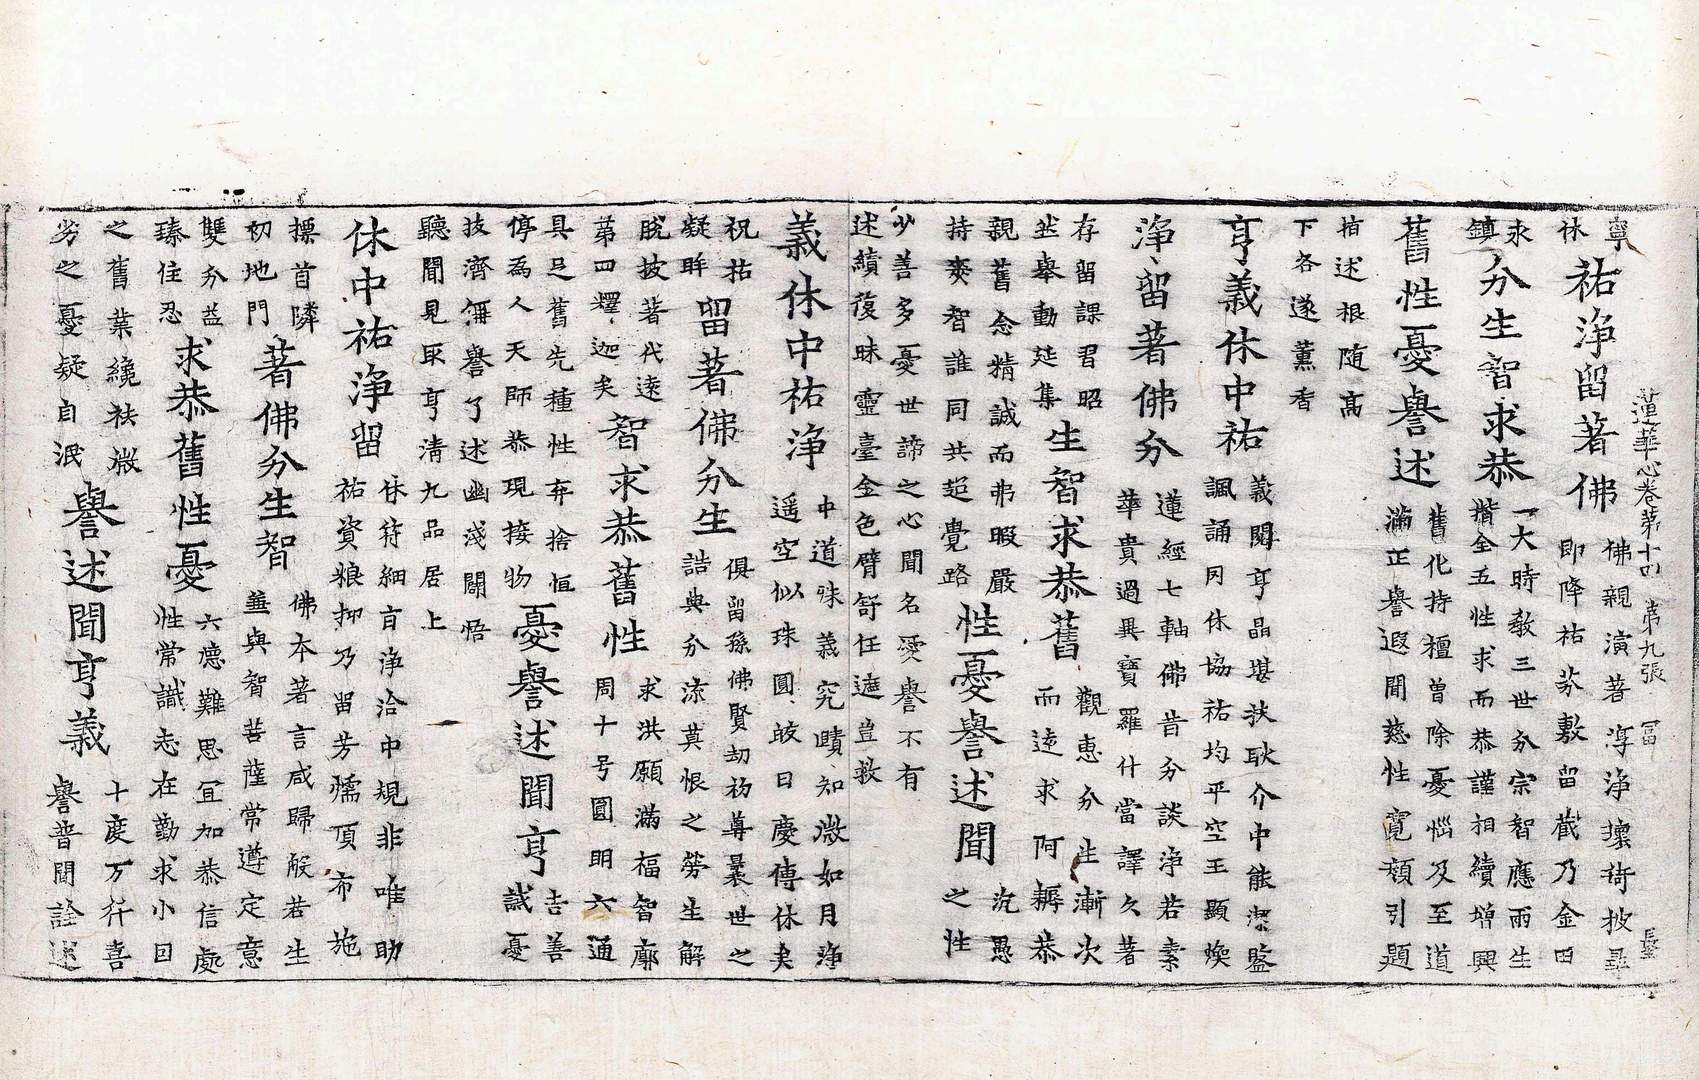 蓮華心卷第十四 第九張 冨
寧
休
祐浄留著佛
佛親演菩浄壞琦披尋
即降祐芬敷留截乃金田
求
鎮
分生智求恭
一大時教三世分宗智應雨生
揩全五性求而恭謹相續增興
舊性憂譽述
舊化持檀曽除憂惱及至道
滿正譽遐聞慈性寬頬引題
指述根随高
下各遂薫香
亨義休中祐
義閱亨晶堪扶耿介中能潔監
諷誦同休協祐均平空王顯煥
浄留著佛分
蓮經七軸佛昔分談浄若素
華貴過異寶羅什當譯久著
存留課君昭
然舉動延集
生智求恭舊
觀惠分生漸次
而逺求阿耨恭
親舊念精誠而弗暇嚴
持爽智誰同共超覺路
性憂譽述聞
況愚
之性
少善多憂世諦之心聞名愛譽不有
述績復昧靈臺金色臂舒任遮豈救
義休中祐浄
中道殊義究賾知微如月浄
遥空似珠圓皎日慶傳休矣
祝祐
凝眸
留著佛分生
俱留孫佛賢劫初尊曩世之
誥典分流莫恨之勞生解
脱披著代逺
第四釋迦矣
智求恭舊性
求洪願滿福智廓
周十号圓明六通
具足舊先種性弃捨恒
停為人天師恭現接物
憂譽述聞亨
吉善
誡憂
技濟無譽了述幽淺闘悟
聽聞見取亨清九品居上
休中祐浄留
休符細盲浄洽中規非唯助
祐資粮抑乃留芳懦頂布施
摽首隣
初地門
著佛分生智
佛本著言咸歸般若生
並與智菩薩常遵定意
雙分益
臻住忍
求恭舊性憂
六臆難思宜加恭信處
性常識志在勤求小因
之舊業纔袪微
劣之憂疑自泯
譽述聞亨義
十度万行喜
譽普聞詮述